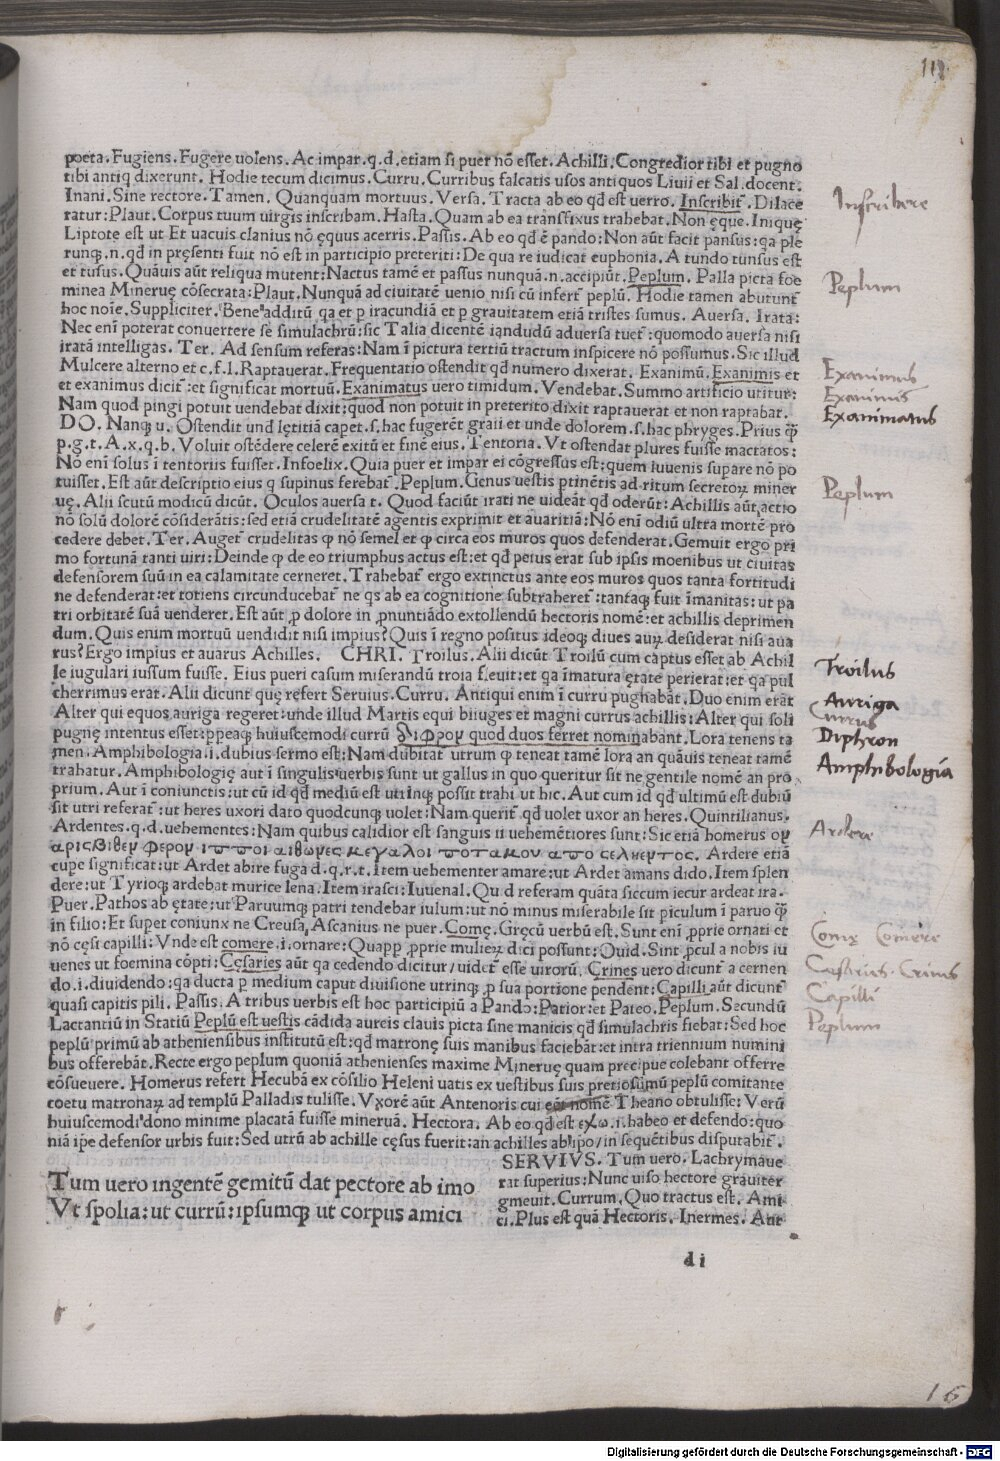 poeta. Fugiens. Fugere uolens. Ac impar. q. d. etiam si puer nō esset. Achilli. Congredior tibi et pugno
tibi antiq dixerunt. Hodie tecum dicimus. Curru. Curribus falcatis usos antiquos Liuii et Sal. docent.
Inani. Sine rectore. Tamen. Quanquam mortuus. Versa. Tracta ab eo qđ est uerro. Inscribit᷑. Dilace
ratur: Plaut. Corpus tuum uirgis inscribam. Hasta. Quam ab ea transfixus trahebat. Non ęque. Iniquę
Liptote est ut Et uacuis clanius nō ęquus acerris. Passis. Ab eo qđ ē pando: Non aūt facit pansus: qa plē
runqꝫ. n. qđ in pręsenti fuit nō est in participio preteriti: De qua re iudicat euphonia. A tundo tunsus est
et tusus. Quāuis aūt reliqua mutent: Nactus tamē et passus nunquā. n. accipiūt. Peplum. Palla picta foe
minea Mineruę cōsecrata: Plaut. Nunquā ad ciuitatē uenio nisi cū infert᷑ peplū. Hodie tamen abutunt᷑
hoc noīe. Suppliciter. Bene additū qa et p iracundiā et p grauitatem etiā tristes sumus. Auersa. Irata:
Nec enī poterat conuertere se simulachrū: sic Talia dicentē iandudū aduersa tuet᷑: quomodo auersa nisi
iratā intelligas. Ter. Ad sensum referas: Nam ī pictura tertiū tractum inspicere nō possumus. Sic illud
Mulcere alterno et c. f. l. Raptauerat. Frequentatio ostendit qđ numero dixerat. Exanimū. Exanimis et
et exanimus dicit᷑: et significat mortuū. Exanimatus uero timidum. Vendebat. Summo artificio utitur:
Nam quod pingi potuit uendebat dixit: quod non potuit in preterito dixit raptauerat et non raptabat.
DO. Nanqꝫ u. Ostendit unđ lętitiā capet. s. hac fugerēt graii et unde dolorem. s. hac phryges. Prius qꝫ̄
p. g. t. A. x. q. b. Voluit ostēdere celerē exitū et finē eius. Tentoria. Vt ostendat plures fuisse mactatos:
Nō enī solus ī tentoriis fuisset. Infoelix. Quia puer et impar ei cōgressus est: quem iuuenis supare nō po
tuisset. Est aūt descriptio eius q supinus ferebat᷑. Peplum. Genus uestis ptinētis ad ritum secretoꝝ miner
uę. Alii scutū modicū dicūt. Oculos auersa t. Quod faciūt irati ne uideāt qđ oderūt: Achillis aūt actio
nō solū dolorē cōsiderātis: sed etiā crudelitatē agentis exprimit et auaritiā: Nō enī odiū ultra mortē pro
cedere debet. Ter. Auget᷑ crudelitas ꝙ nō semel et ꝙ circa eos muros quos defenderat. Gemuit ergo pri
mo fortunā tanti uiri: Deinde ꝙ de eo triumphus actus est: et qđ peius erat sub ipsis moenibus ut ciuitas
defensorem suū in ea calamitate cerneret. Trahebat᷑ ergo extinctus ante eos muros quos tanta fortitudi
ne defenderat: et totiens circunducebat᷑ ne qs ab ea cognitione subtraheret᷑: tantaqꝫ fuit īmanitas: ut pa
tri orbitatē suā uenderet. Est aūt ꝓ dolore in ꝓnuntiādo extollendū hectoris nomē: et achillis deprimen
dum. Quis enim mortuū uendidit nisi impius? Quis ī regno positus ideoqꝫ diues auꝝ desiderat nisi aua
rus? Ergo impius et auarus Achilles. CHRI. Troilus. Alii dicūt Troilū cum captus esset ab Achil
le iugulari iussum fuisse. Eius pueri casum miserandū troia fleuit: et qa īmatura ętate perierat: et qa pul
cherrimus erat. Alii dicunt quę refert Seruius. Curru. Antiqui enim ī curru pugnabāt. Duo enim erāt
Alter qui equos auriga regeret: unde illud Martis equi biiuges et magni currus achillis: Alter qui soli
pugnę intentus esset: ppeaqꝫ huiuscemodi currū διφρομ quod duos ferret nominabant. Lora tenens ta
men. Amphibologia. i. dubius sermo est: Nam dubitat᷑ utrum ꝙ teneat tamē lora an quāuis teneat tamē
trahatur. Amphibologię aut ī singulis uerbis sunt ut gallus in quo queritur sit ne gentile nomē an pro
prium. Aut ī coniunctis: ut cū id qđ mediū est utrinqꝫ possit trahi ut hic. Aut cum id qđ ultimū est dubiū
sit utri referat᷑: ut heres uxori dato quodcunqꝫ uolet: Nam querit᷑ qđ uolet uxor an heres. Quintilianus.
Ardentes. q. d. uehementes: Nam quibus calidior est sanguis ii uehemētiores sunt: Sic etiā homerus ομ
αρισβιθεμ φερομ ιπποι αιθωμες μεγαλοι ποταμου απο σεληεμτος. Ardere etiā
cupe significat: ut Ardet abire fuga d. q. r. t. Item uehementer amare: ut Ardet amans dido. Item splen
dere: ut Tyrioqꝫ ardebat murice lena. Item irasci: Iuuenal. Qu d referam quāta siccum iecur ardeat ira.
Puer. Pathos ab ętate: ut Paruumqꝫ patri tendebat iulum: ut nō minus miserabile sit piculum ī paruo qꝫ̄
in filio: Et supet coniunx ne Creusa, Ascanius ne puer. Comę. Gręcū uerbū est. Sunt enī ꝓprie ornati et
nō cęsi capilli: Vnde est comere. i. ornare: Quapp ꝓprie mulieꝝ dici possunt: Ouid. Sint ꝓcul a nobis iu
uenes ut foemina cōpti: Cęsaries aūt qa cedendo dicitur / uidet᷑ esse uirorū. Crines uero dicunt᷑ a cernen
do. i. diuidendo: qa ducta p medium caput diuisione utrinqꝫ ꝓ sua portione pendent: Capilli aūt dicunt᷑
quasi capitis pili. Passis. A tribus uerbis est hoc participiū a Pando: Patior: et Pateo. Peplum. Secundū
Lactantiū in Statiū Peplū est uestis cādida aureis clauis picta sine manicis qđ simulachris fiebat: Sed hoc
peplū primū ab atheniensibus institutū est: qđ matronę suis manibus faciebāt: et intra triennium numini
bus offerebāt. Recte ergo peplum quoniā athenienses maxime Mineruę quam precipue colebant offerre
cōsueuere. Homerus refert Hecubā ex cōsilio Heleni uatis ex uestibus suis pretiosimū peplū comitante
coetu matronaꝝ ad templū Palladis tulisse. Vxorē aūt Antenoris cui nomē Theano obtulisse: Verū
huiuscemodi dono minime placatā fuisse mineruā. Hectora. Ab eo qđ est εχω. i. habeo et defendo: quo
niā ipe defensor urbis fuit: Sed utrū ab achille cęsus fuerit: an achilles ab ipo / in sequētibus disputabit᷑.
SERVIVS. Tum uero. Lachrymaue
rat superius: Nunc uiso hectore grauiter
gmeuit. Currum. Quo tractus est. Ami
ci. Plus est quā Hectoris. Inermes. Aut
Tum uero ingentē gemitū dat pectore ab imo
Vt spolia: ut currū: ipsumqꝫ ut corpus amici
d i
Inscribere
Peplum
Exanimus
Exanimis
Exanimatus
Peplum
Troilus
Auriga
Currus
Diphron
Amphibologia
Ardere
Comę Comere
Cęsaries. Crines
Capilli
Peplum
16
Digitalisierung gefördert durch die Deutsche Forschungsgemeinschaft - DFG